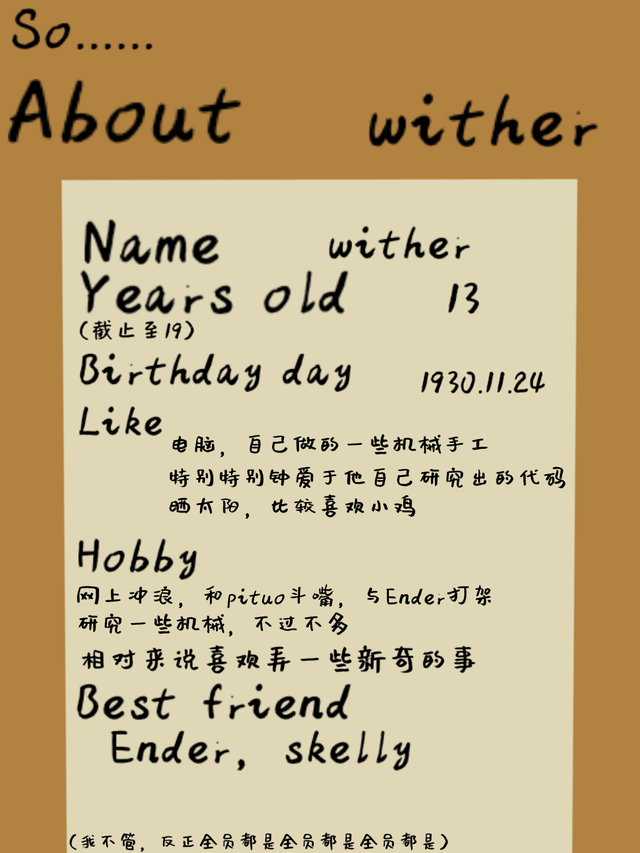 So......
About wither
Name wither
Years old 13
(截止至19)
Birthday day 1930.11.24
Like
电脑，自己做的一些机械手工
特别特别钟爱于他自己研究出的代码
晒太阳，比较喜欢小鸡
Hobby
网上冲浪，和pituo斗嘴，与Ender打架
研究一些机械，不过不多
相对来说喜欢弄一些新奇的事
Best friend
Ender, skelly
(我不管，反正全员都是全员都是全员都是)